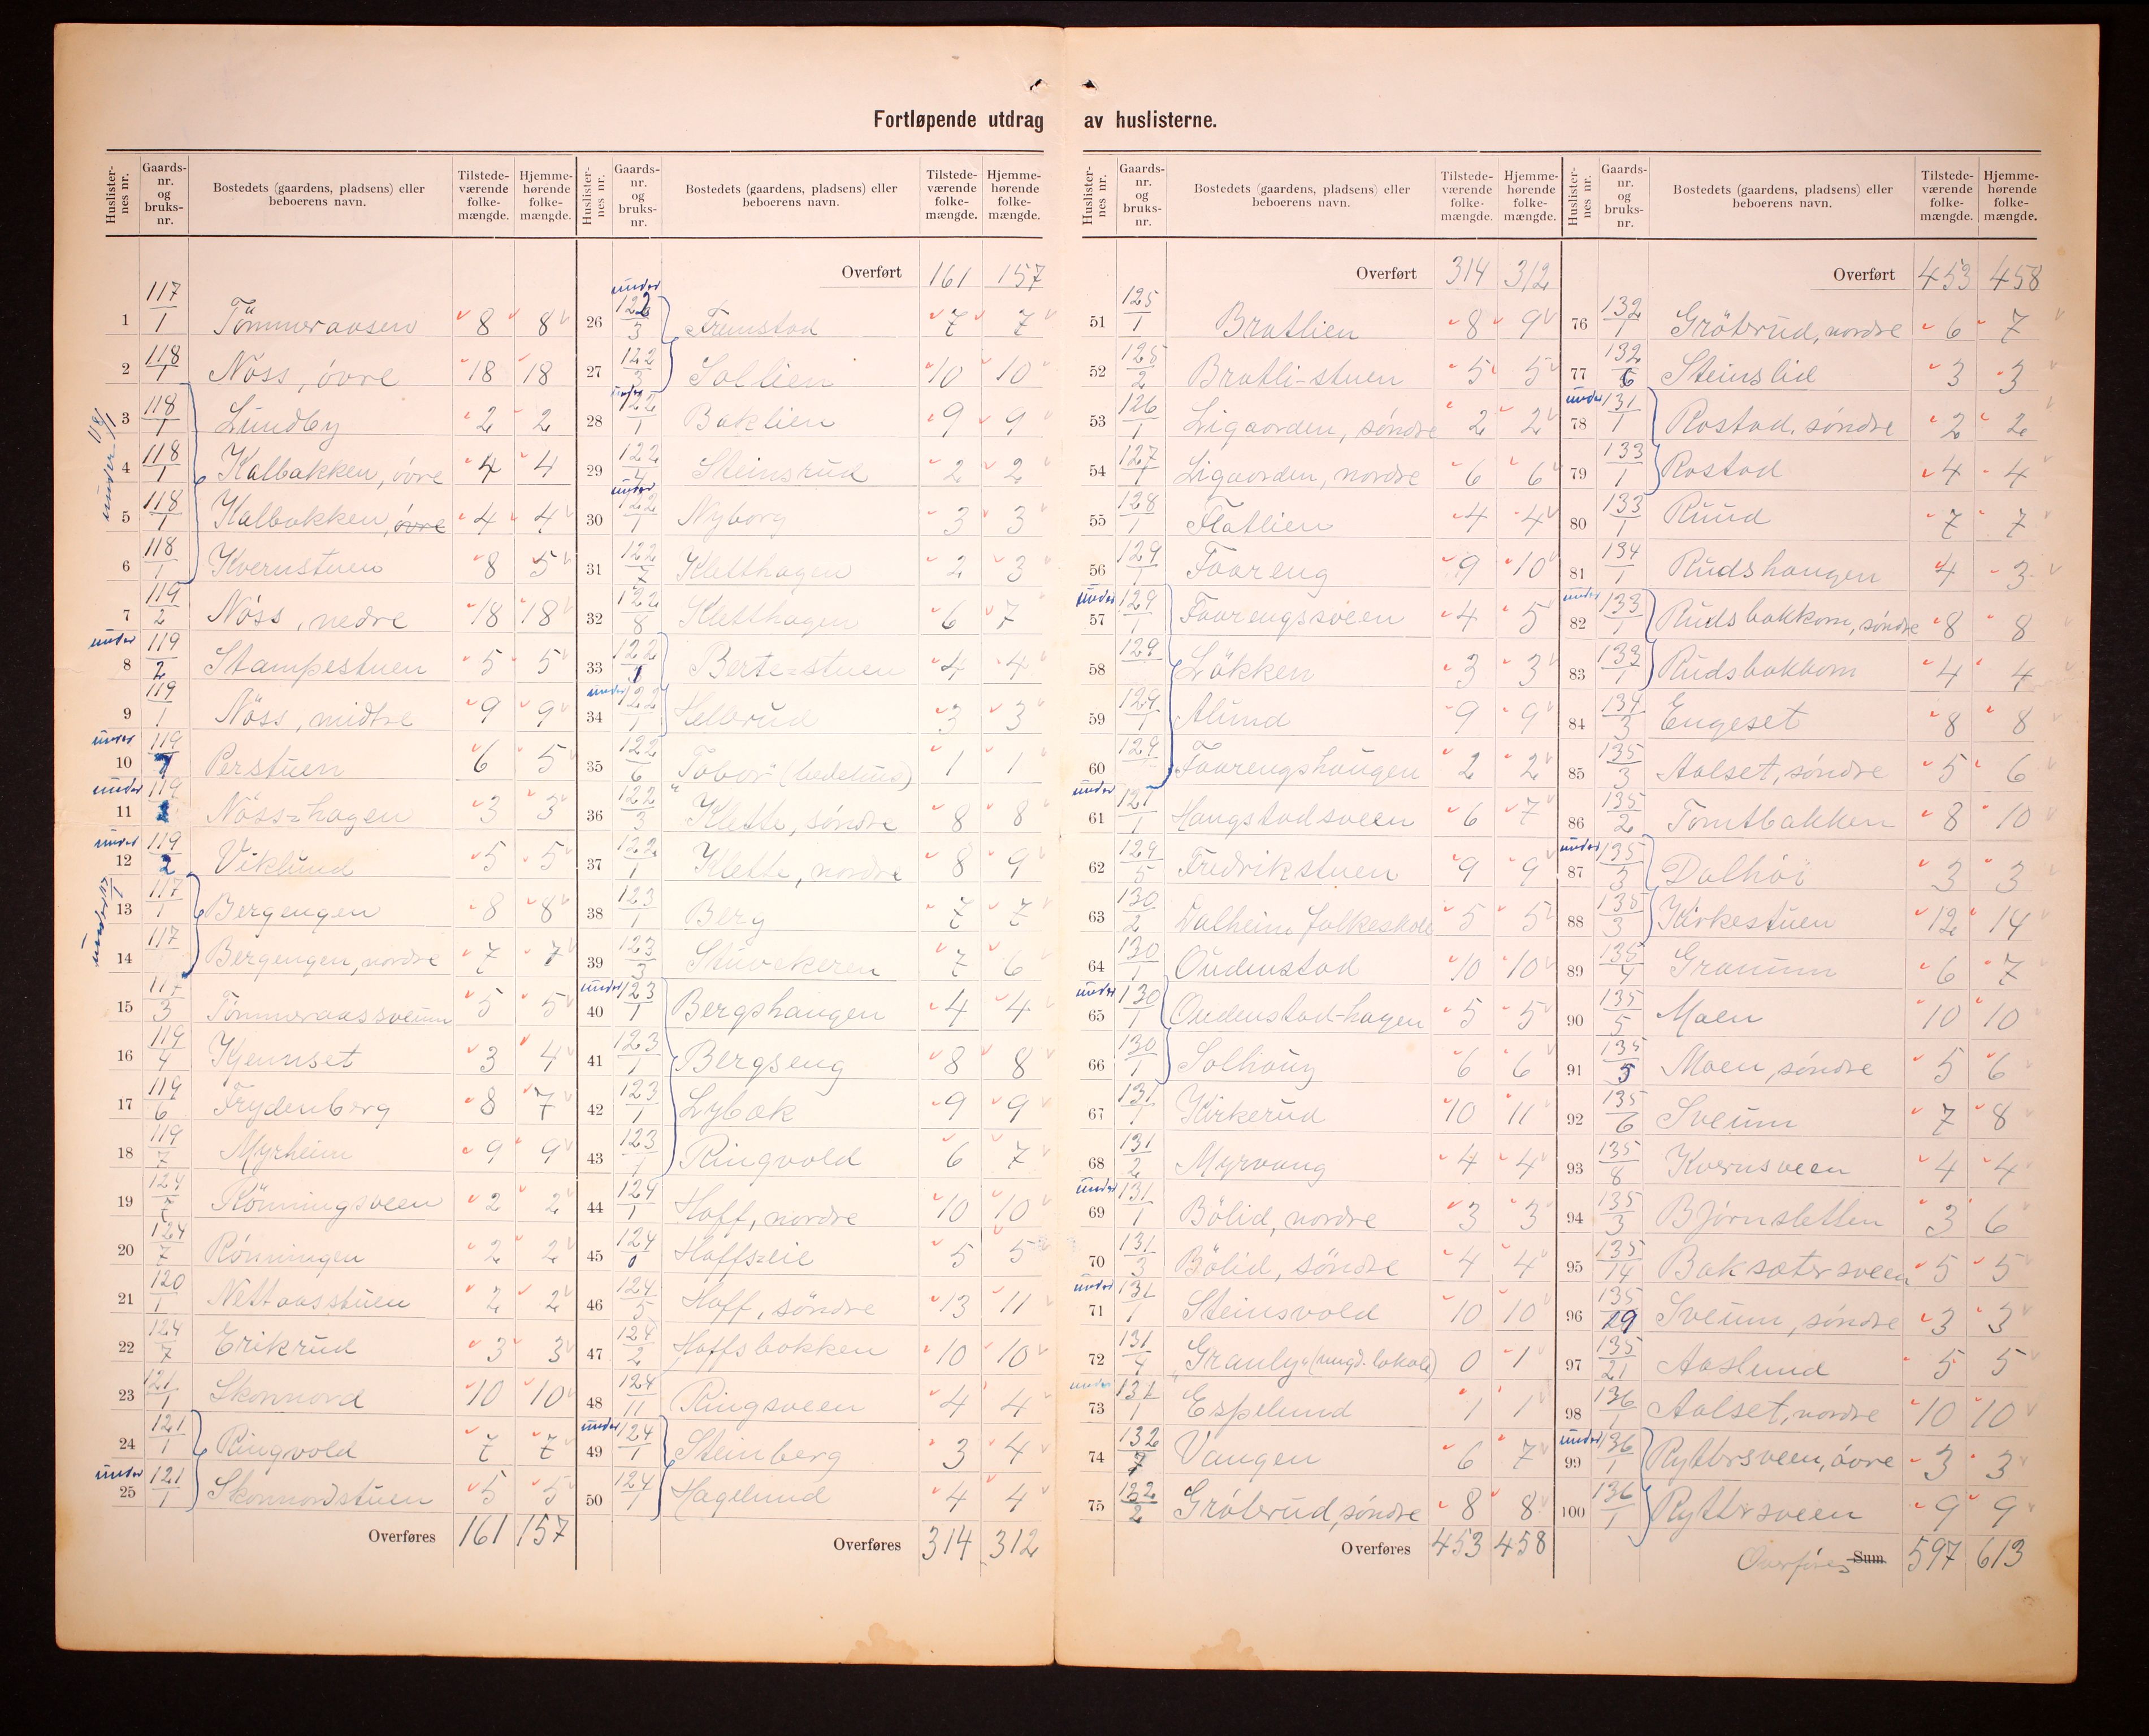 Fortløpende utdrag av huslisterne.
Huslisternes nr. Gaards-nr. og bruks-nr. Bostedets (gaardens, pladsens) eller beboerens navn. Tilstedeværende folkemængde. Hjemmehørende folkemængde.
1 117/1 Tömmeraasen 8 8
2 118/1 Nöss, övre 18 18
under 118/1
3 118/1 Lundby 2 2
4 118/1 Kalbakken, övre 4 4
5 118/1 Kalbakken, övre 4 4
6 118/1 Kvernstuen 8 5
7 119/2 Nöss, nedre 18 18
under
8 119/2 Stampestuen 5 5
9 119/1 Nöss, midtre 9 9
under
10 119/1 Perstuen 6 5
under
11 119/2 Nöss-hagen 3 3
under
12 119/2 Viklund 5 5
under 117/1
13 117/1 Bergengen 8 8
14 117 Bergengen, nordre 7 7
15 117/3 Tömmeraassveum 5 5
16 119/4 Kjennset 3 4
17 119/6 Frydenberg 8 7
18 119/7 Myrheim 9 9
19 124 Rönningsveen 2 2
20 124/7 Rönningen 2 2
21 120/1 Nettaasstuen 2 2
22 124/7 Erikrud 3 3
23 121/1 Skonnord 10 10
24 121/1 Ringvold 7 7
under
25 121/1 Skonnordstuen 5 5
Overføres 161 157
Huslisternes nr. Gaards-nr. og bruks-nr. Bostedets (gaardens, pladsens) eller beboerens navn. Tilstedeværende folkemængde. Hjemmehørende folkemængde.
Overført 161 157
under
26 122/3 Fremstad 7 7
27 122/3 Sollien 10 10
under
28 122/1 Baklien 9 9
29 122/4 Steinsrud 2 2
under
30 122/1 Nyborg 3 3
31 122/7 Kletthagen 2 3
32 122/8 Kletthagen 6 7
33 122/1 Berte-stuen 4 4
under
34 122/1 3 3
35 122/6 "Tabor" (bedehus) 1 1
36 122/3 Klette, søndre 8 8
37 122/1 Klette, nordre 8 9
38 123/1 Berg 7 7
39 123/3 Stuvekeren 7 6
under
40 123/1 Bergshaugen 4 4
41 123/1 Bergseng 8 8
42 123/1 Lybæk 9 9
43 123/1 Ringvold 6 7
44 124/1 Hoff, nordre 10 10
45 124/0 Hoffseie 5 5
46 124/5 Hoff, söndre 13 11
47 124/2 Hoffsbakken 10 10
48 124/11 Ringsveen 4 4
under
49 124/1 Steinberg 3 4
50 124/1 Hagelund 4 4
Overføres 314 312
Huslisternes nr. Gaards-nr. og bruks-nr. Bostedets (gaardens, pladsens) eller beboerens navn. Tilstedeværende folkemængde. Hjemmehørende folkemængde.
Overført 314 312
51 125/1 Bratlien 8 9
52 125/2 Bratli-stuen 5 5
53 126/1 Ligaarden, søndre 2 2
54 127/1 Ligaarden, nordre 6 6
55 128/1 Flatlien 4 4
56 129/1 Faareng 9 10
under
57 129/1 Faarengsveen 4 5
58 129 Løkken 3 3
59 129/1 Alund 9 9
60 129 Faarengshaugen 2 2
under
61 127/1 Haugstadsveen 6 7
62 129/5 Fredrikstuen 9 9
63 130/2 Dalheim folkeskole 5 5
64 130/1 Oudenstad 10 10
under
65 130/1 Oudenstad-hagen 5 5
66 130/1 Solhaug 6 6
67 131/1 Kirkerud 10 11
68 131/2 Myrvang 4 4
under
69 131/1 Bölid, nordre 3 3
70 131/3 Bölid, söndre 4 4
under
71 131/1 Steinsvold 10 10
72 131/4 "Granly" (ungd. lokale) 0 1
under
73 131/1 Espelund 1 1
74 132/7 Vangen 6 7
75 132/2 Gröterud, søndre 8 8
Overføres 453 458
Huslisternes nr. Gaards-nr. og bruks-nr. Bostedets (gaardens, pladsens) eller beboerens navn. Tilstedeværende folkemængde. Hjemmehørende folkemængde.
Overført 453 458
76 132/1 Gröterud, nordre 6 7
77 132/6 Steinslid 3 3
under
78 131/1 Rostad, søndre 2 2
79 133/1 Rostad 4 4
80 133/1 Ruud 7 7
81 134/1 Rudshaugen 4 3
under
82 133/1 Rudsbakkom, søndre 8 8
83 133/1 Rudsbakkom 4 4
84 134/3 Engeset 8 8
85 135/3 Aalset, søndre 5 6
86 135/2 Tomtbakken 8 10
under
87 135/3 Dalhöi 3 3
88 135/3 Kirkestuen 12 14
89 135/4 Granum 6 7
90 135/5 Moen 10 10
91 135/5 Moen, søndre 5 6
92 135/6 Sveum 7 8
93 135/8 Kvernsveen 4 4
94 135/3 Björnsletten 3 6
95 135/14 Baksætersveen 5 5
96 135/19 Sveum, søndre 3 3
97 135/21 Aaslund 5 5
98 136/1 Aalset, nordre 10 10
under
99 136/1 Ryttersveen, övre 3 3
100 136/1 Ryttersveen 9 9
Overføres Sum 597 613